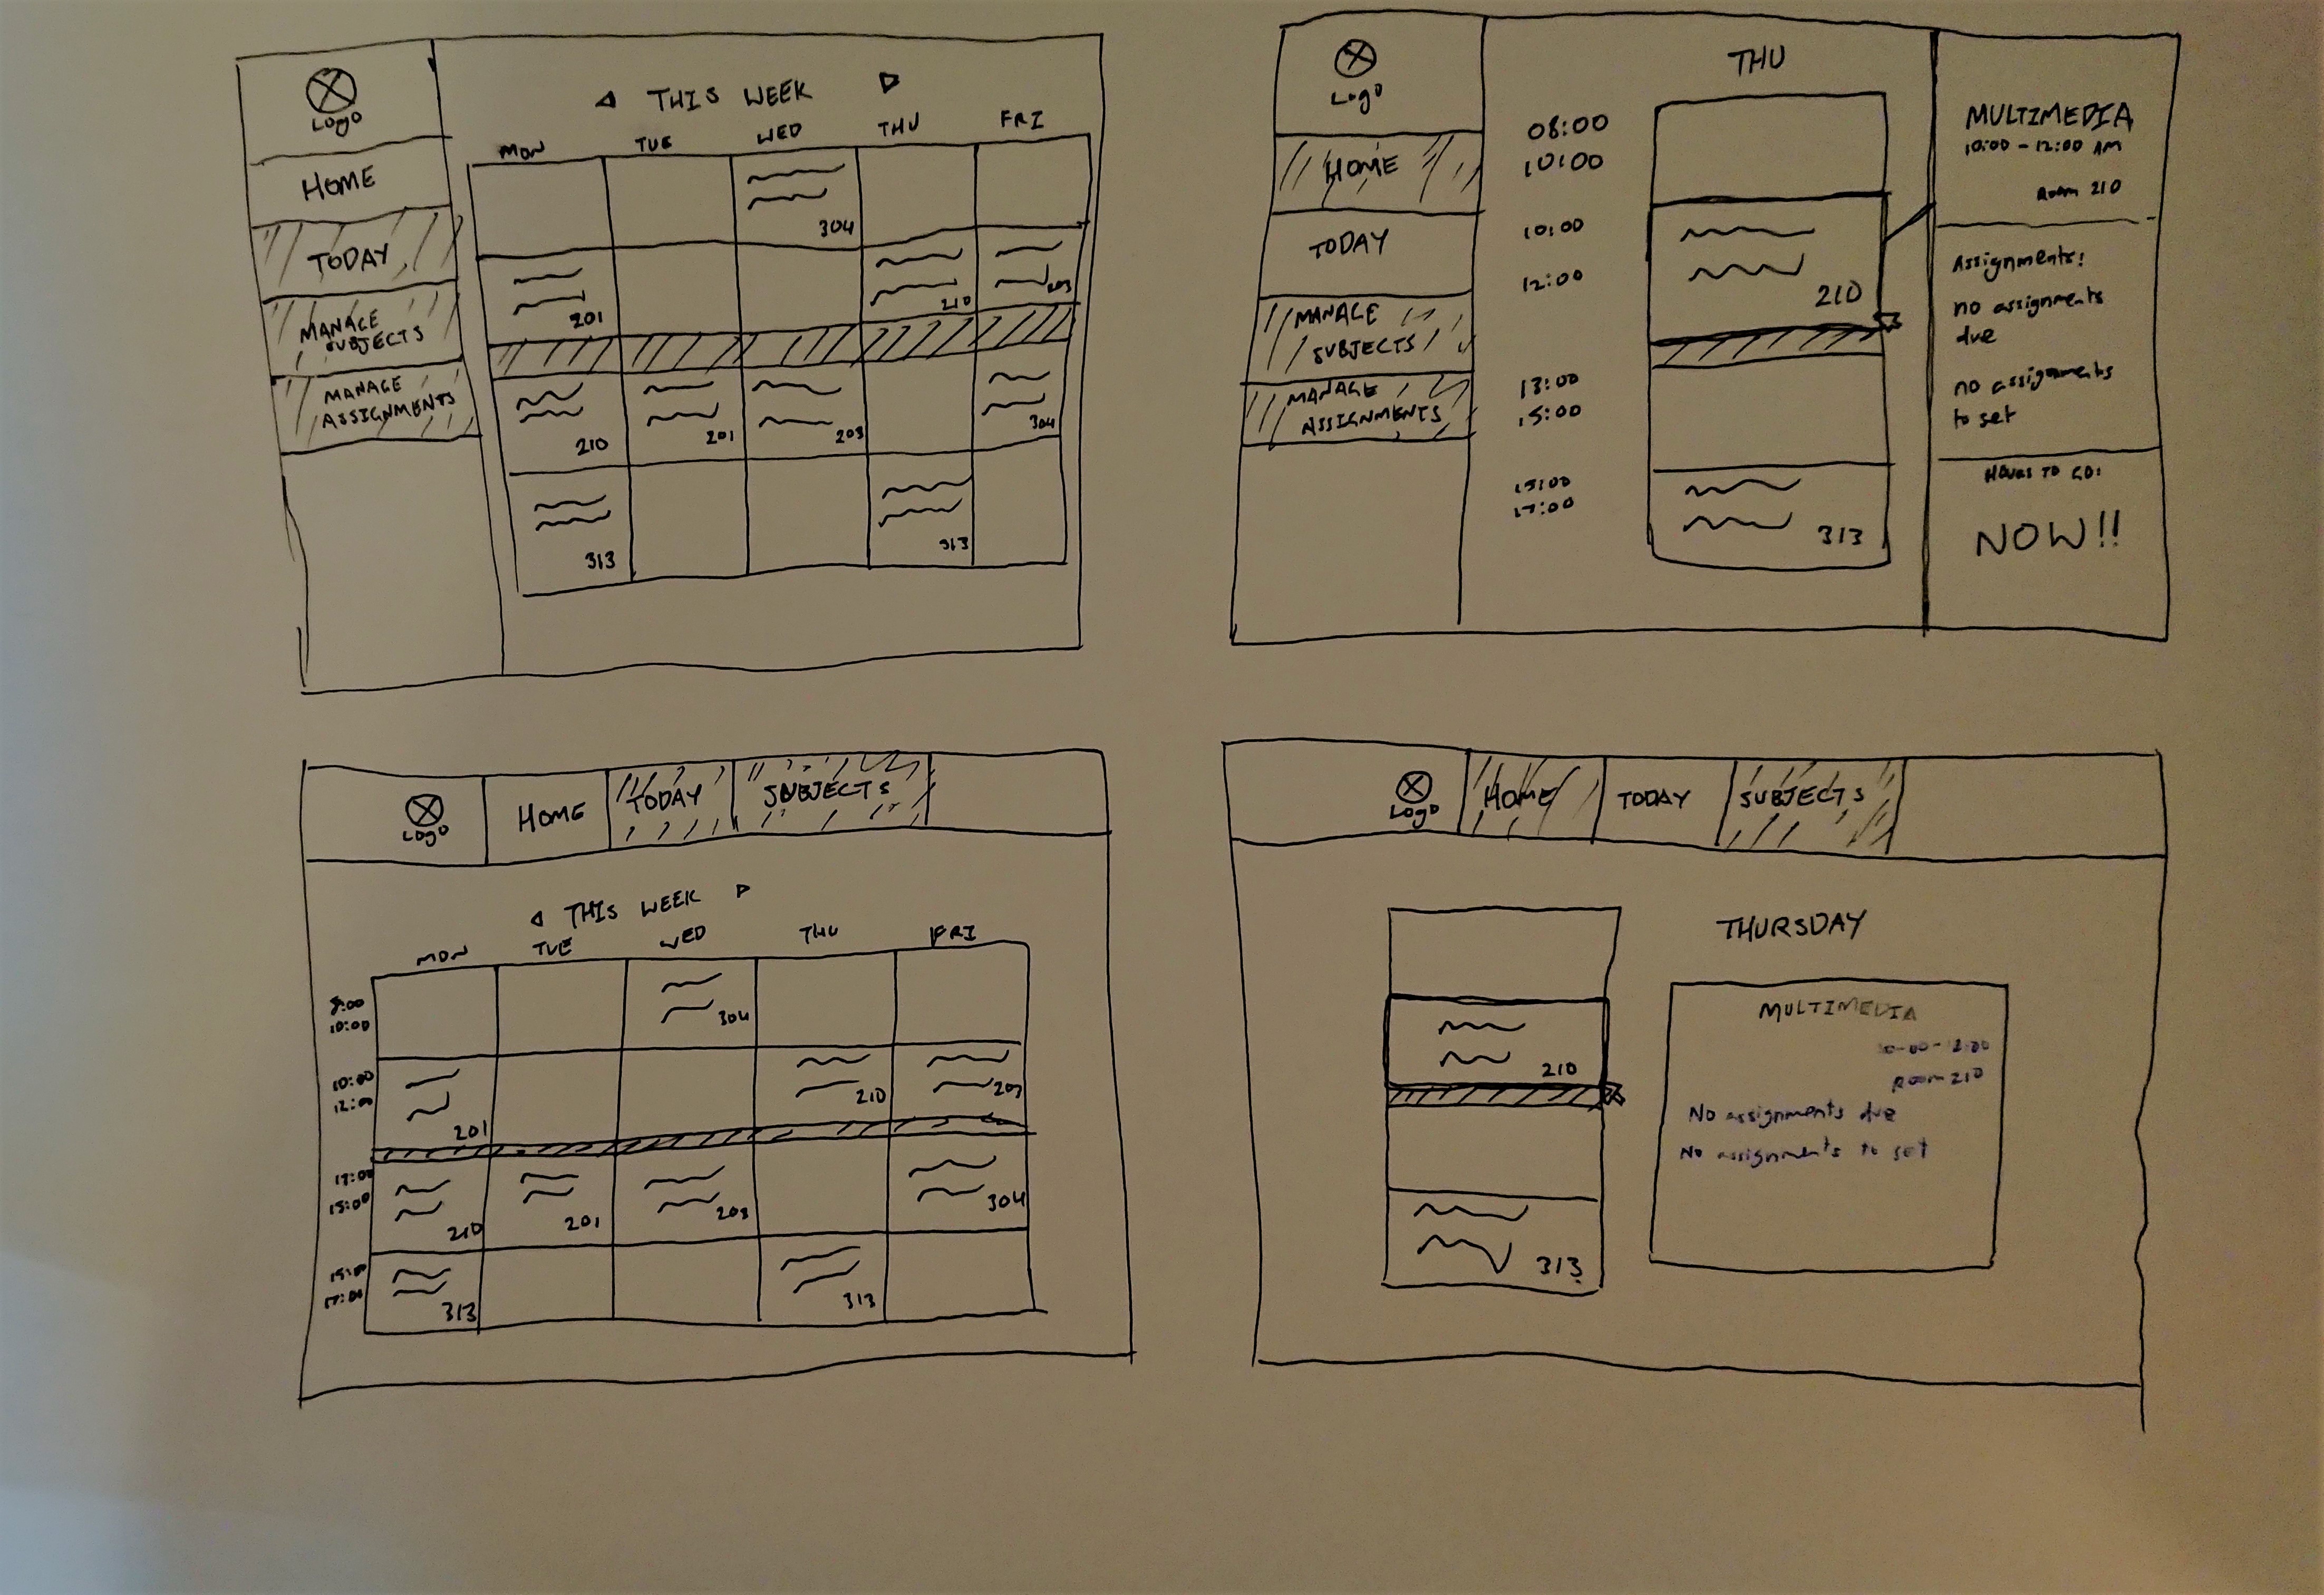 Logo
HOME
TODAY
MANAGE
SUBJECTS
MANAGE
ASSIGNMENTS
THIS WEEK
MON TUE WED THU FRI
304
201 210 203
210 201 203 304
313 313
Logo
HOME
TODAY
MANAGE
SUBJECTS
MANAGE
ASSIGNMENTS
THU
08:00
10:00
10:00
12:00
13:00
15:00
15:00
17:00
210
313
MULTIMEDIA
10:00 - 12:00 AM
Room 210
Assignments:
no assignments
due
no assignments
to set
HOURS TO GO:
NOW!!
Logo HOME TODAY SUBJECTS
THIS WEEK
MON TUE WED THU FRI
8:00
10:00
304
10:00
12:00
201 210 203
13:00
15:00
210 201 203 304
15:00
17:00
313 313
Logo HOME TODAY SUBJECTS
THURSDAY
210
313
MULTIMEDIA
10:00 - 12:00
Room 210
No assignments due
No assignments to set